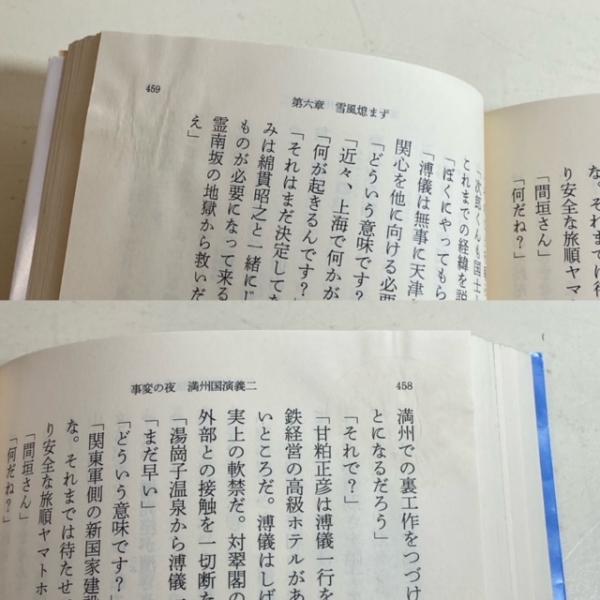 459
第六章 雪風熄まず
「次郎くんも国士
とれまでの経緯を説
「ぼくにやってもら
「溥儀は無事に天津
関心を他に向ける必要
「どういう意味です？
「近々、上海で何かが
「何が起きるんです？
「それはまだ決定してな
みは綿貫昭之と一緒にじ
ものが必要になって来る
霊南坂の地獄から救いだ
え」
な。それまでは
り安全な旅順ヤマ
「間垣さん」
「何だね？」
事変の夜 満州国演義二
458
満州での裏工作をつづけ
とになるだろう」
「それで？」
「甘粕正彦は溥儀一行を
鉄経営の高級ホテルがあ
いところだ。溥儀はしば
実上の軟禁だ。対翠閣の
外部との接触を一切断た
「湯崗子温泉から溥儀一
「まだ早い」
「どういう意味です？」
「関東軍側の新国家建設
な。それまでは待たせ
り安全な旅順ヤマトホ
「間垣さん」
「何だね？」